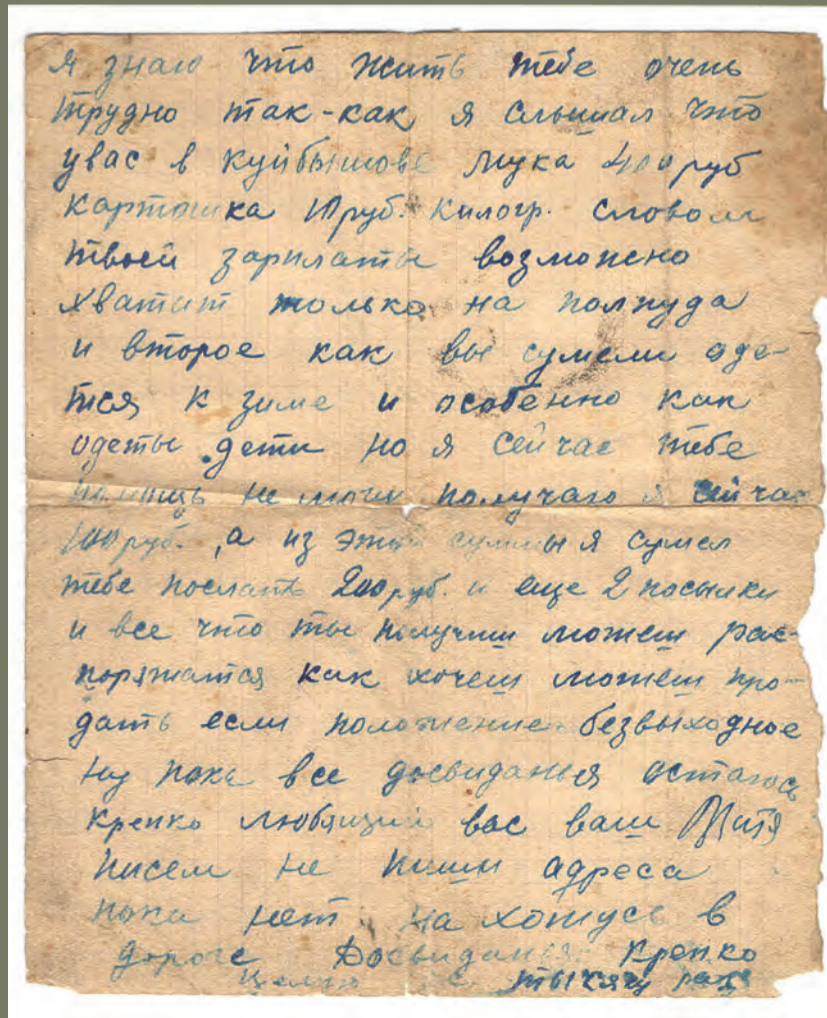 я знаю что жить тебе очень
трудно так-как я слышал что
увас в куйбышове мука 400 руб
картошка 10 руб. килогр. словом
твоей зарплаты возможно
хватит только на полпуда
и второе как вы сумели оде-
тся к зиме и особенно как
одеты дети но я сейчас тебе
помощь не могу получаю я сейчас
100 руб., а из этой суммы я сумел
тебе послать 200 руб. и еще 2 посылки
и все что ты получиш можеш рас-
поряжатся как хочеш можеш про-
дать если положение безвыходное
ну пока все досвиданья остаюсь
крепко любящий вас ваш Митя
писем не пиши адреса
пока нет нахожусь в
дороге Досвиданья. крепко
целую тысячу раз